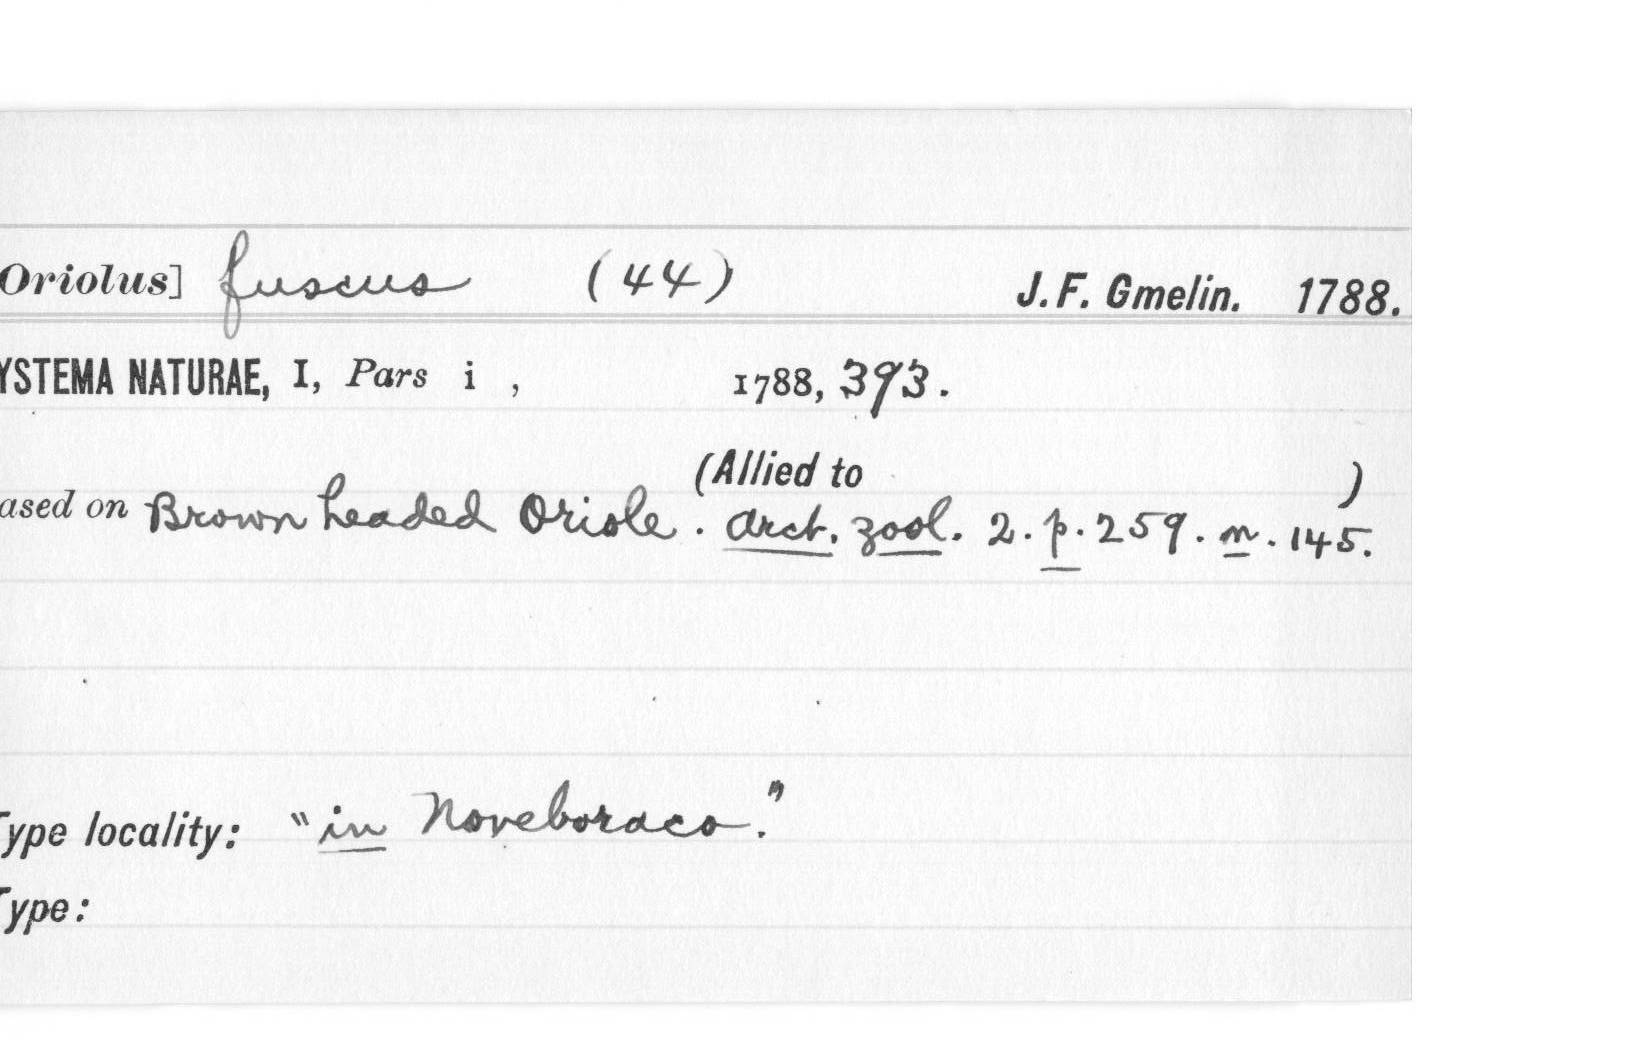 Oriolus] fuscus (44) J. F. Gmelin. 1788.
YSTEMA NATURAE, I, Pars i , 1788, 393.
(Allied to )
ased on Brown headed Oriole. Arct. zool. 2. p. 259. n. 145.
Type locality: "in Noveboraco."
Type: